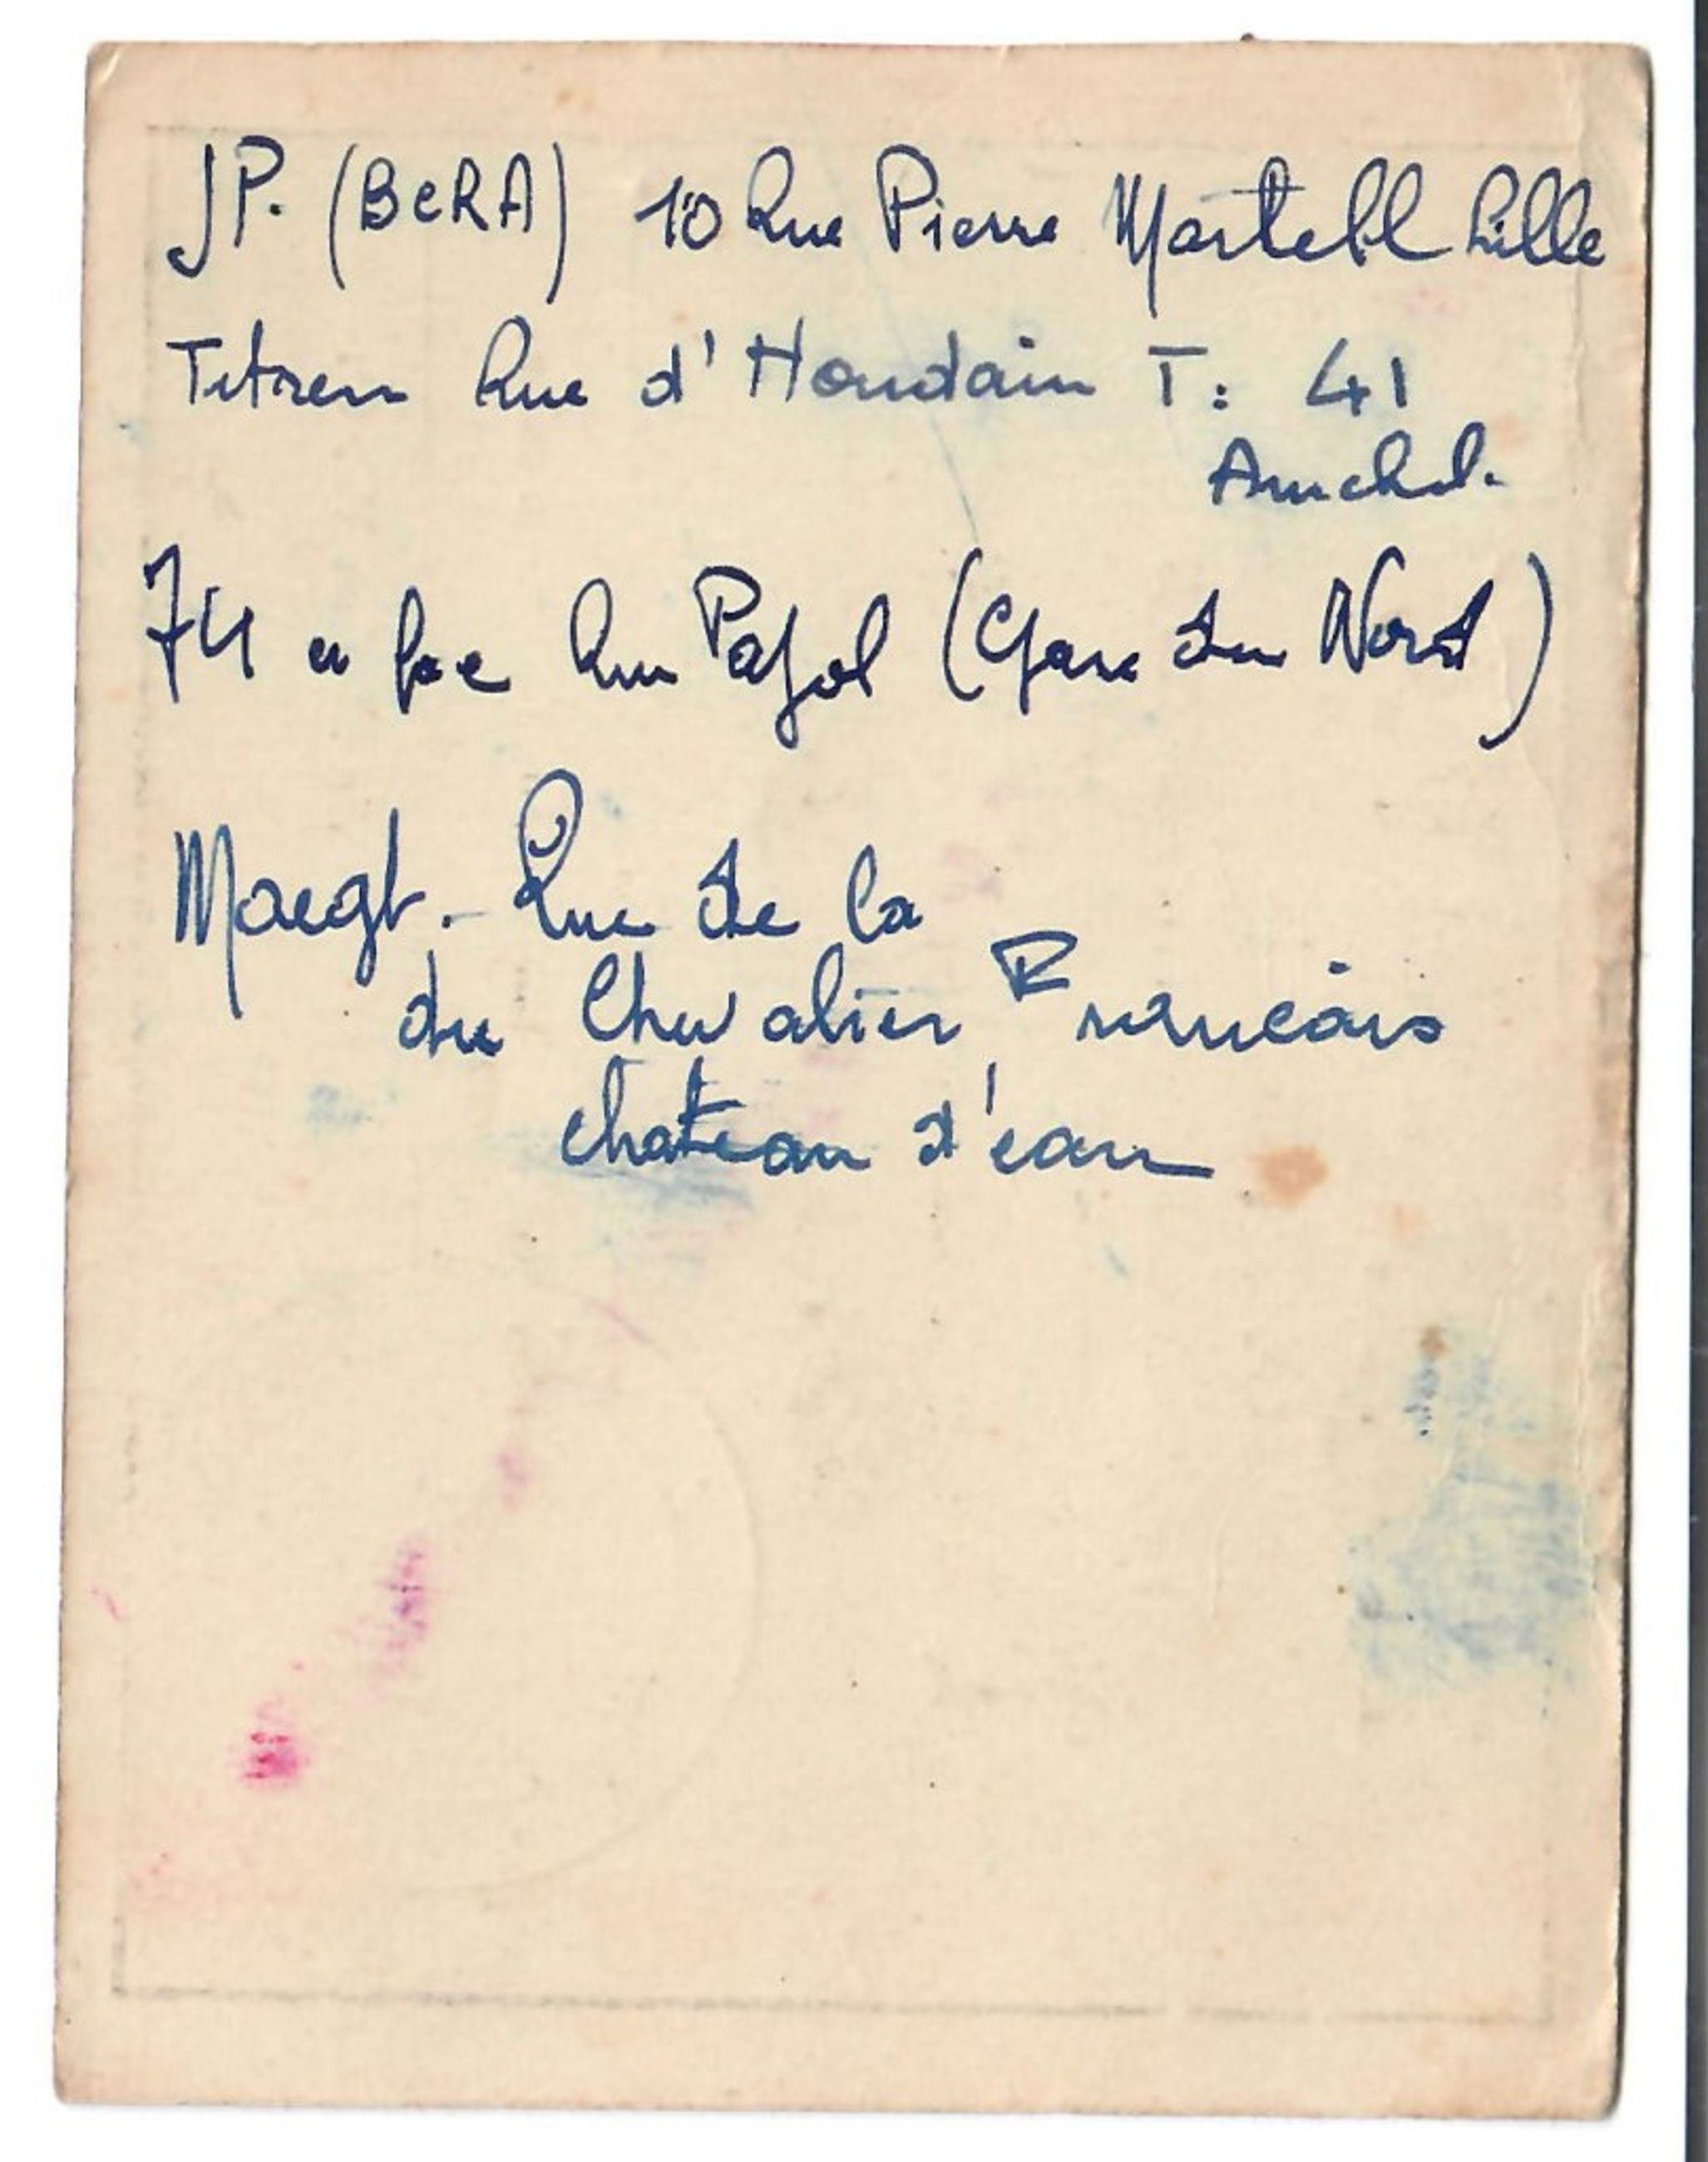 JP. (BeRA) 10 Rue Pierre Martell Lille
Titren Rue d'Houdain T: 41
Auchel.
74 en face Rue Pajol (Gare du Nord)
Maegt. - Rue de la
du Chevalier Francais
chateau d'eau